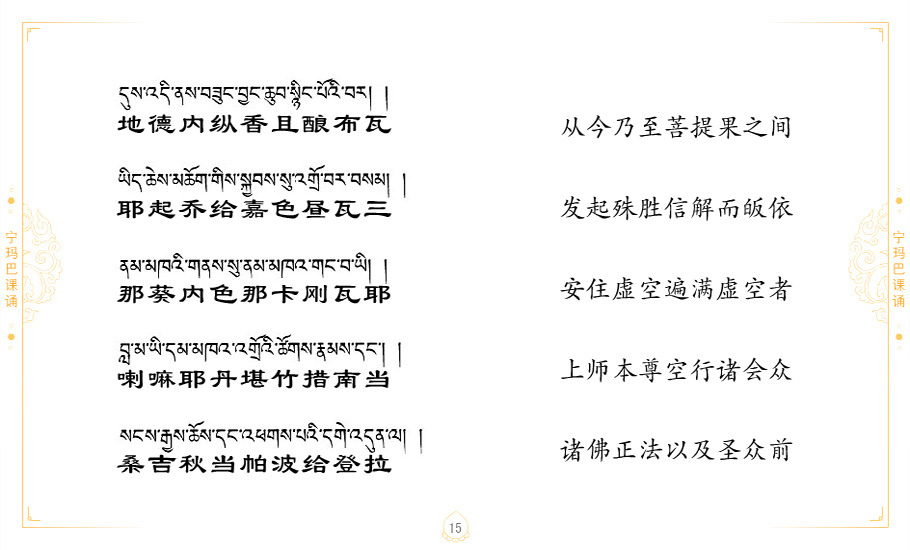 དུས་འདི་ནས་བཟུང་བྱང་ཆུབ་སྙིང་པོའི་བར། །
地德内纵香且酿布瓦
从今乃至菩提果之间
ཡིད་ཆེས་མཆོག་གིས་སྐྱབས་སུ་འགྲོ་བར་བསམ། །
耶起乔给嘉色昼瓦三
发起殊胜信解而皈依
ནམ་མཁའི་གནས་སུ་ནམ་མཁའ་གང་བ་ཡི། །
那葵内色那卡刚瓦耶
安住虚空遍满虚空者
བླ་མ་ཡི་དམ་མཁའ་འགྲོའི་ཚོགས་རྣམས་དང་། །
喇嘛耶丹堪竹措南当
上师本尊空行诸会众
སངས་རྒྱས་ཆོས་དང་འཕགས་པའི་དགེ་འདུན་ལ། །
桑吉秋当帕波给登拉
诸佛正法以及圣众前
宁玛巴课诵
宁玛巴课诵
15